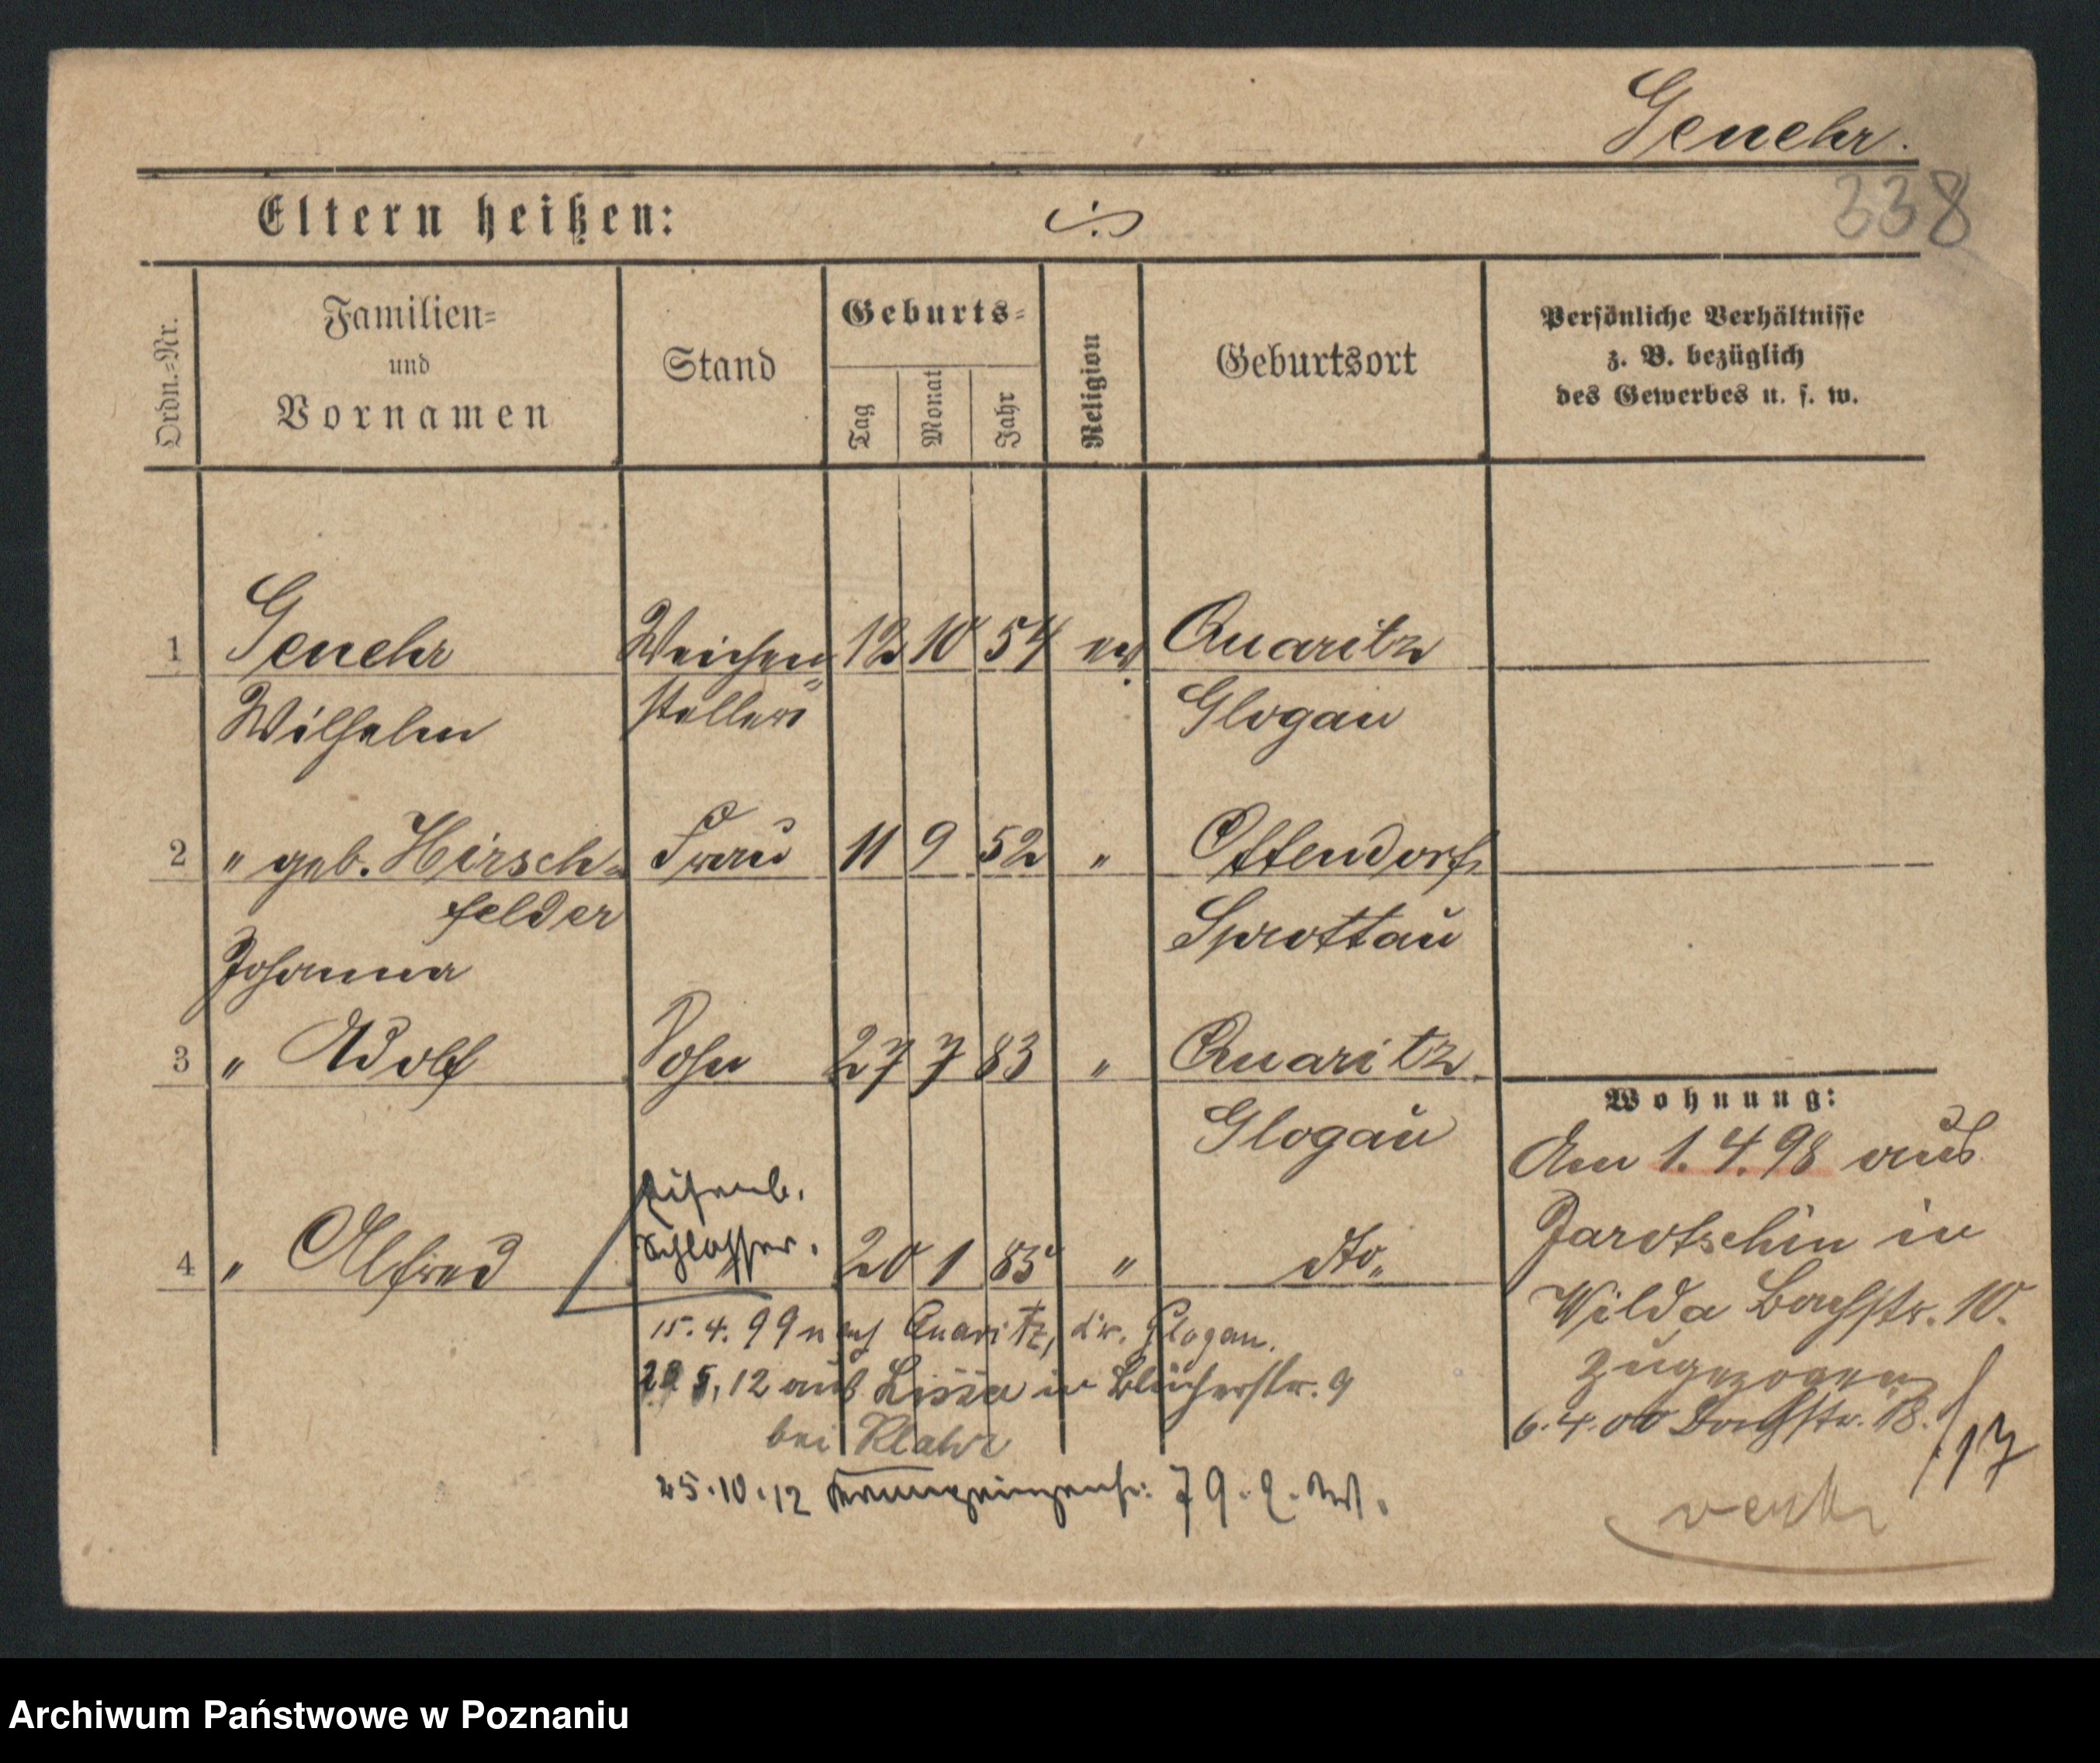 Genehr.
338
Eltern heißen:
Ordn.=Nr.
Familien=
und
Vornamen
Stand
Geburts=
Tag
Monat
Jahr
Religion
Geburtsort
Persönliche Verhältnisse
z. B. bezüglich
des Gewerbes u. s. w.
1 Genehr Weichen 12 10 54 ev. Quaritz
Wilhelm steller Glogau
2 " geb. Hirsch= Frau 11 9 52 " Ottendorf
felder Sprottau
Johanna
3 " Adolf Sohn 27 7 83 " Quaritz
Glogau
Eisenb.
4 " Alfred Schlosser. 20 1 85 " dto.
15.4.99 nach Quaritz, Kr. Glogau.
5.12 aus Lissa in Blücherstr. 9
bei Klahr
25.10.12 79.
Wohnung:
Am 1.4.98 aus
Jarotschin in
Wilda Bachstr. 10.
zugezogen
6.4.00 Bachstr. 18.
/17